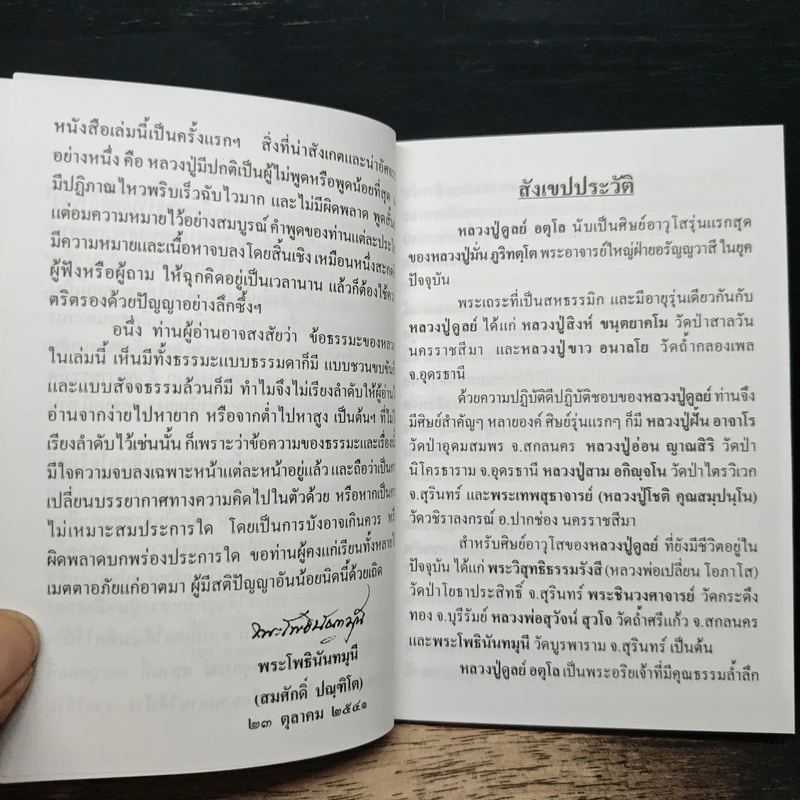 หนังสือเล่มนี้เป็นครั้งแรกฯ สิ่งที่น่าสังเกตและน่าอัศจรรย์
อย่างหนึ่ง คือ หลวงปู่มีปกติเป็นผู้ไม่พูดหรือพูดน้อยที่สุด
มีปฏิภาณไหวพริบเร็วฉับไวมาก และไม่มีผิดพลาด พูดสั้น
แต่อมความหมายไว้อย่างสมบูรณ์ คำพูดของท่านแต่ละประโยค
มีความหมายและเนื้อหาจบลงโดยสิ้นเชิง เหมือนหนึ่งสะกด
ผู้ฟังหรือผู้ถาม ให้ฉุกคิดอยู่เป็นเวลานาน แล้วก็ต้องใช้
ตริตรองด้วยปัญญาอย่างลึกซึ้งฯ
อนึ่ง ท่านผู้อ่านอาจสงสัยว่า ข้อธรรมะของหลวง
ในเล่มนี้ เห็นมีทั้งธรรมะแบบธรรมดาก็มี แบบชวนขบขันก็
และแบบสัจจธรรมล้วนก็มี ทำไมจึงไม่เรียงลำดับให้ผู้อ่าน
อ่านจากง่ายไปหายาก หรือจากต่ำไปหาสูง เป็นต้นฯ ที่ไม่
เรียงลำดับไว้เช่นนั้น ก็เพราะว่าข้อความของธรรมะและเรื่อง
มีใจความจบลงเฉพาะหน้าแต่ละหน้าอยู่แล้ว และถือว่าเป็น
เปลี่ยนบรรยากาศทางความคิดไปในตัวด้วย หรือหากเป็น
ไม่เหมาะสมประการใด โดยเป็นการบังอาจเกินควร
ผิดพลาดบกพร่องประการใด ขอท่านผู้คงแก่เรียนทั้งหลาย
เมตตาอภัยแก่อาตมา ผู้มีสติปัญญาอันน้อยนิดนี้ด้วยเถิด
พระโพธินันทมุนี
พระโพธินันทมุนี
(สมศักดิ์ ปณฺฑิโต)
๒๓ ตุลาคม ๒๕๔๑
สังเขปประวัติ
หลวงปู่ดูลย์ อตุโล นับเป็นศิษย์อาวุโสรุ่นแรกสุด
ของหลวงปู่มั่น ภูริทตฺโต พระอาจารย์ใหญ่ฝ่ายอรัญญวาสี ในยุค
ปัจจุบัน
พระเถระที่เป็นสหธรรมิก และมีอายุรุ่นเดียวกันกับ
หลวงปู่ดูลย์ ได้แก่ หลวงปู่สิงห์ ขนฺตยาคโม วัดป่าสาลวัน
นครราชสีมา และหลวงปู่ขาว อนาลโย วัดถ้ำกลองเพล
จ.อุดรธานี
ด้วยความปฏิบัติดีปฏิบัติชอบของหลวงปู่ดูลย์ ท่านจึง
มีศิษย์สำคัญๆ หลายองค์ ศิษย์รุ่นแรกๆ ก็มี หลวงปู่ฝั้น อาจาโร
วัดป่าอุดมสมพร จ.สกลนคร หลวงปู่อ่อน ญาณสิริ วัดป่า
นิโครธาราม จ.อุดรธานี หลวงปู่สาม อกิญฺจโน วัดป่าไตรวิเวก
จ.สุรินทร์ และพระเทพสุธาจารย์ (หลวงปู่โชติ คุณสมฺปนฺโน)
วัดวชิราลงกรณ์ อ.ปากช่อง นครราชสีมา
สำหรับศิษย์อาวุโสของหลวงปู่ดูลย์ ที่ยังมีชีวิตอยู่ใน
ปัจจุบัน ได้แก่ พระวิสุทธิธรรมรังสี (หลวงพ่อเปลี่ยน โอภาโส)
วัดป่าโยธาประสิทธิ์ จ.สุรินทร์ พระชินวงศาจารย์ วัดกระดึง
ทอง จ.บุรีรัมย์ หลวงพ่อสุวัจน์ สุวโจ วัดถ้ำศรีแก้ว จ.สกลนคร
และพระโพธินันทมุนี วัดบูรพาราม จ.สุรินทร์ เป็นต้น
หลวงปู่ดูลย์ อตุโล เป็นพระอริยเจ้าที่มีคุณธรรมล้ำลึก